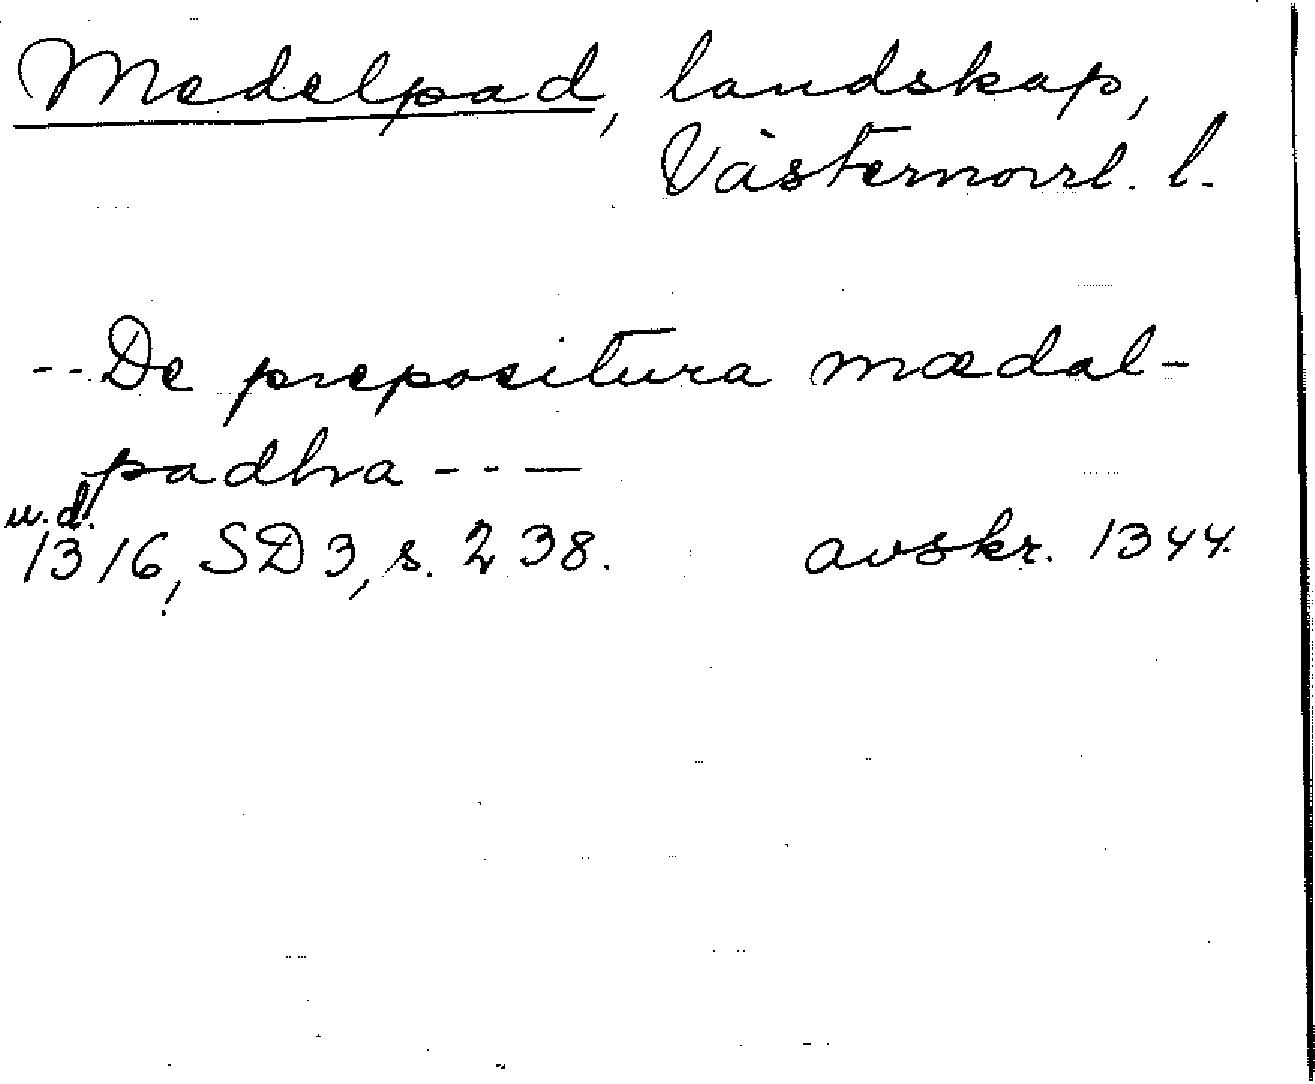 Medelpad, landskap,
Västernorrl. l.
--De prepositura mædal-
padhra ---
u.d.
1316, SD 3, s. 238. avskr. 1344.